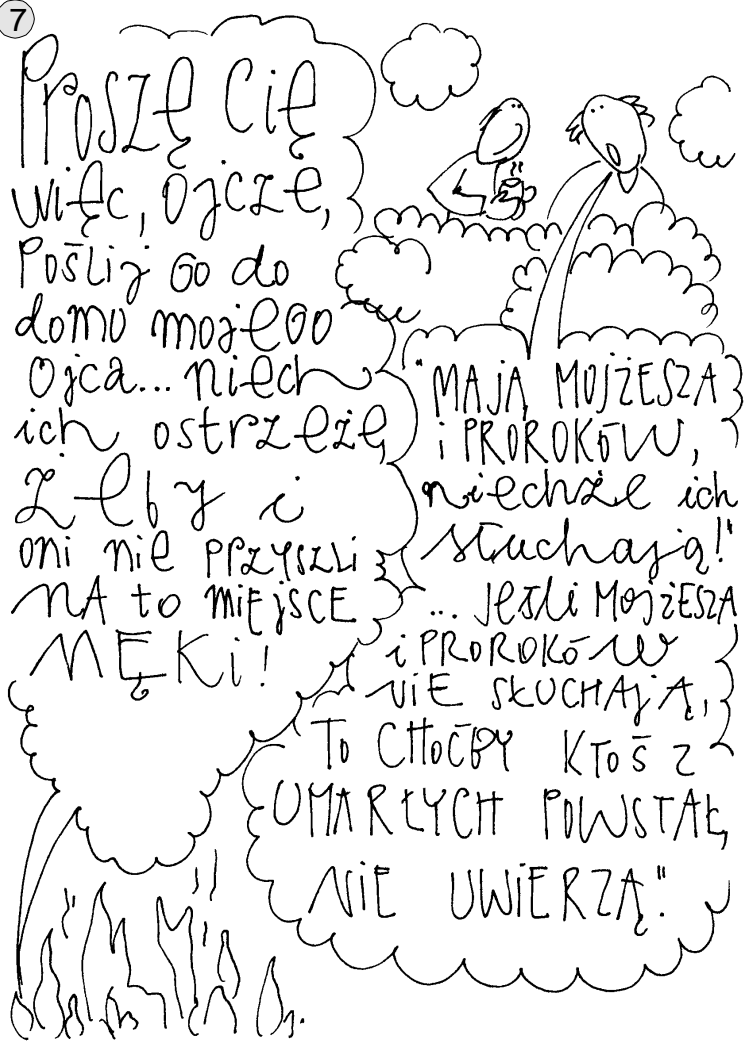 7
Proszę Cię
więc, Ojcze,
Poślij Go do
domu mojego
Ojca... niech
ich ostrzeże,
żeby i
oni nie przyszli
NA to MIEJSCE
MĘKi!
"MAJĄ MOJŻESZA
i PROROKÓW,
niechże ich
słuchają!"
... Jeśli MOJŻESZA
i PROROKÓW
NIE SŁUCHAJĄ,
To CHOĆBY KTOŚ Z
UMARŁYCH POWSTAŁ,
NIE UWIERZĄ."